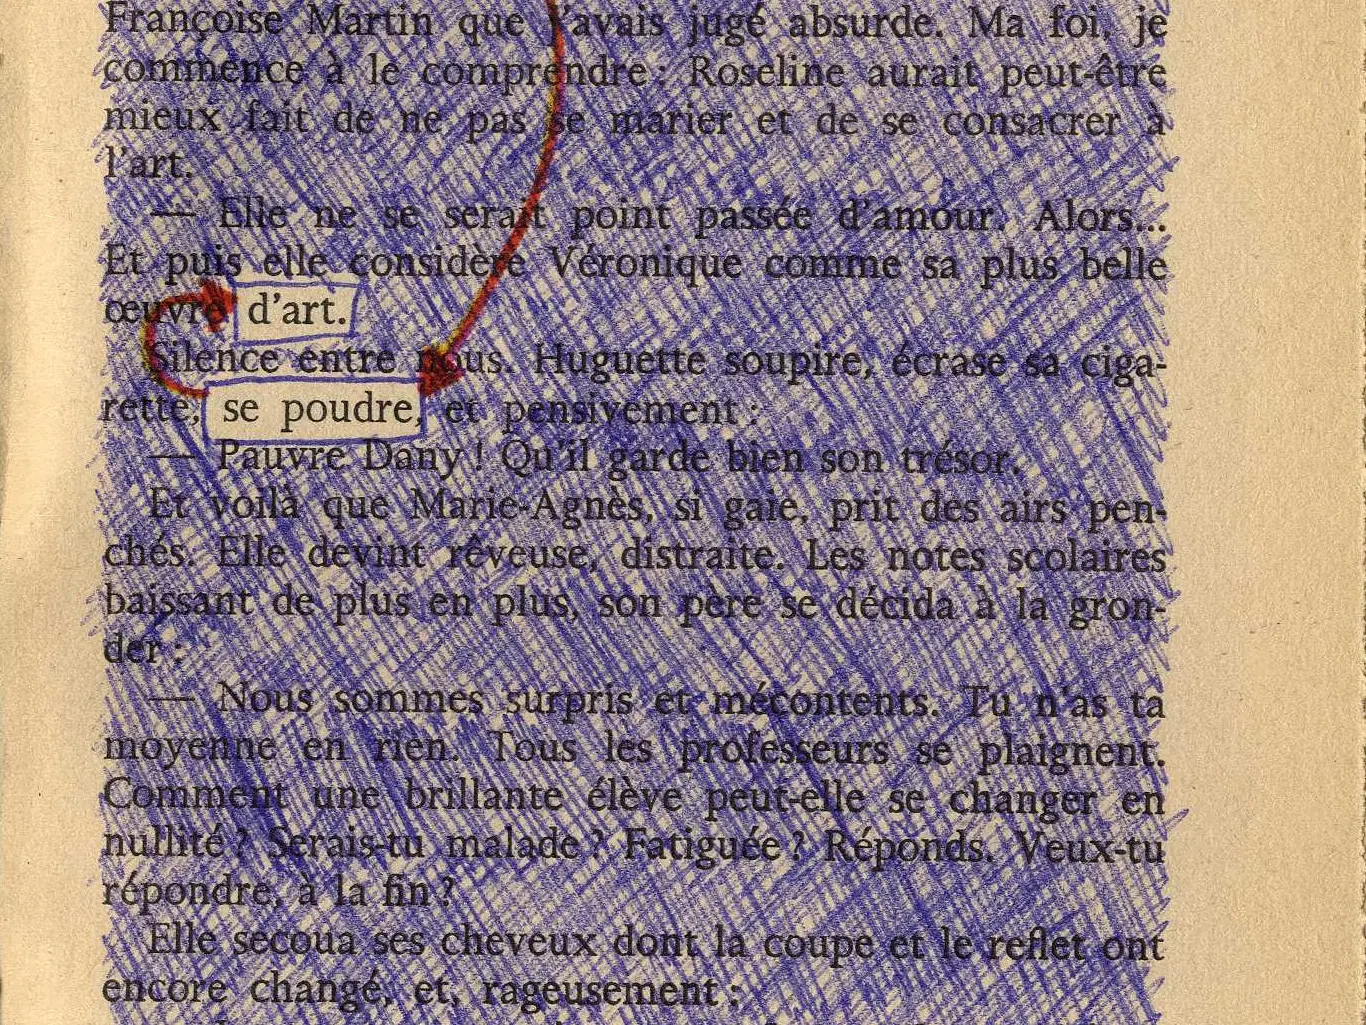 Françoise Martin que j'avais jugé absurde. Ma foi, je
commence à le comprendre : Roseline aurait peut-être
mieux fait de ne pas se marier et de se consacrer à
l'art.
— Elle ne se serait point passée d'amour. Alors...
Et puis elle considère Véronique comme sa plus belle
œuvre d'art.
Silence entre nous. Huguette soupire, écrase sa ciga-
rette, se poudre, et pensivement :
— Pauvre Dany ! Qu'il garde bien son trésor.
Et voilà que Marie-Agnès, si gaie, prit des airs pen-
chés. Elle devint rêveuse, distraite. Les notes scolaires
baissant de plus en plus, son père se décida à la gron-
der :
— Nous sommes surpris et mécontents. Tu n'as ta
moyenne en rien. Tous les professeurs se plaignent.
Comment une brillante élève peut-elle se changer en
nullité ? Serais-tu malade ? Fatiguée ? Réponds. Veux-tu
répondre, à la fin ?
Elle secoua ses cheveux dont la coupe et le reflet ont
encore changé, et, rageusement :